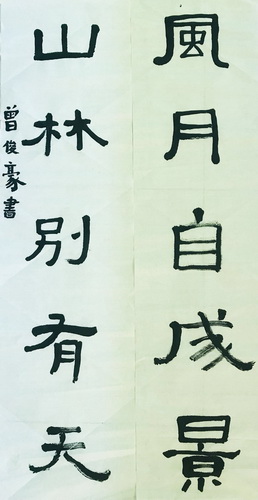 風月自成景
山林別有天
曾俊豪書